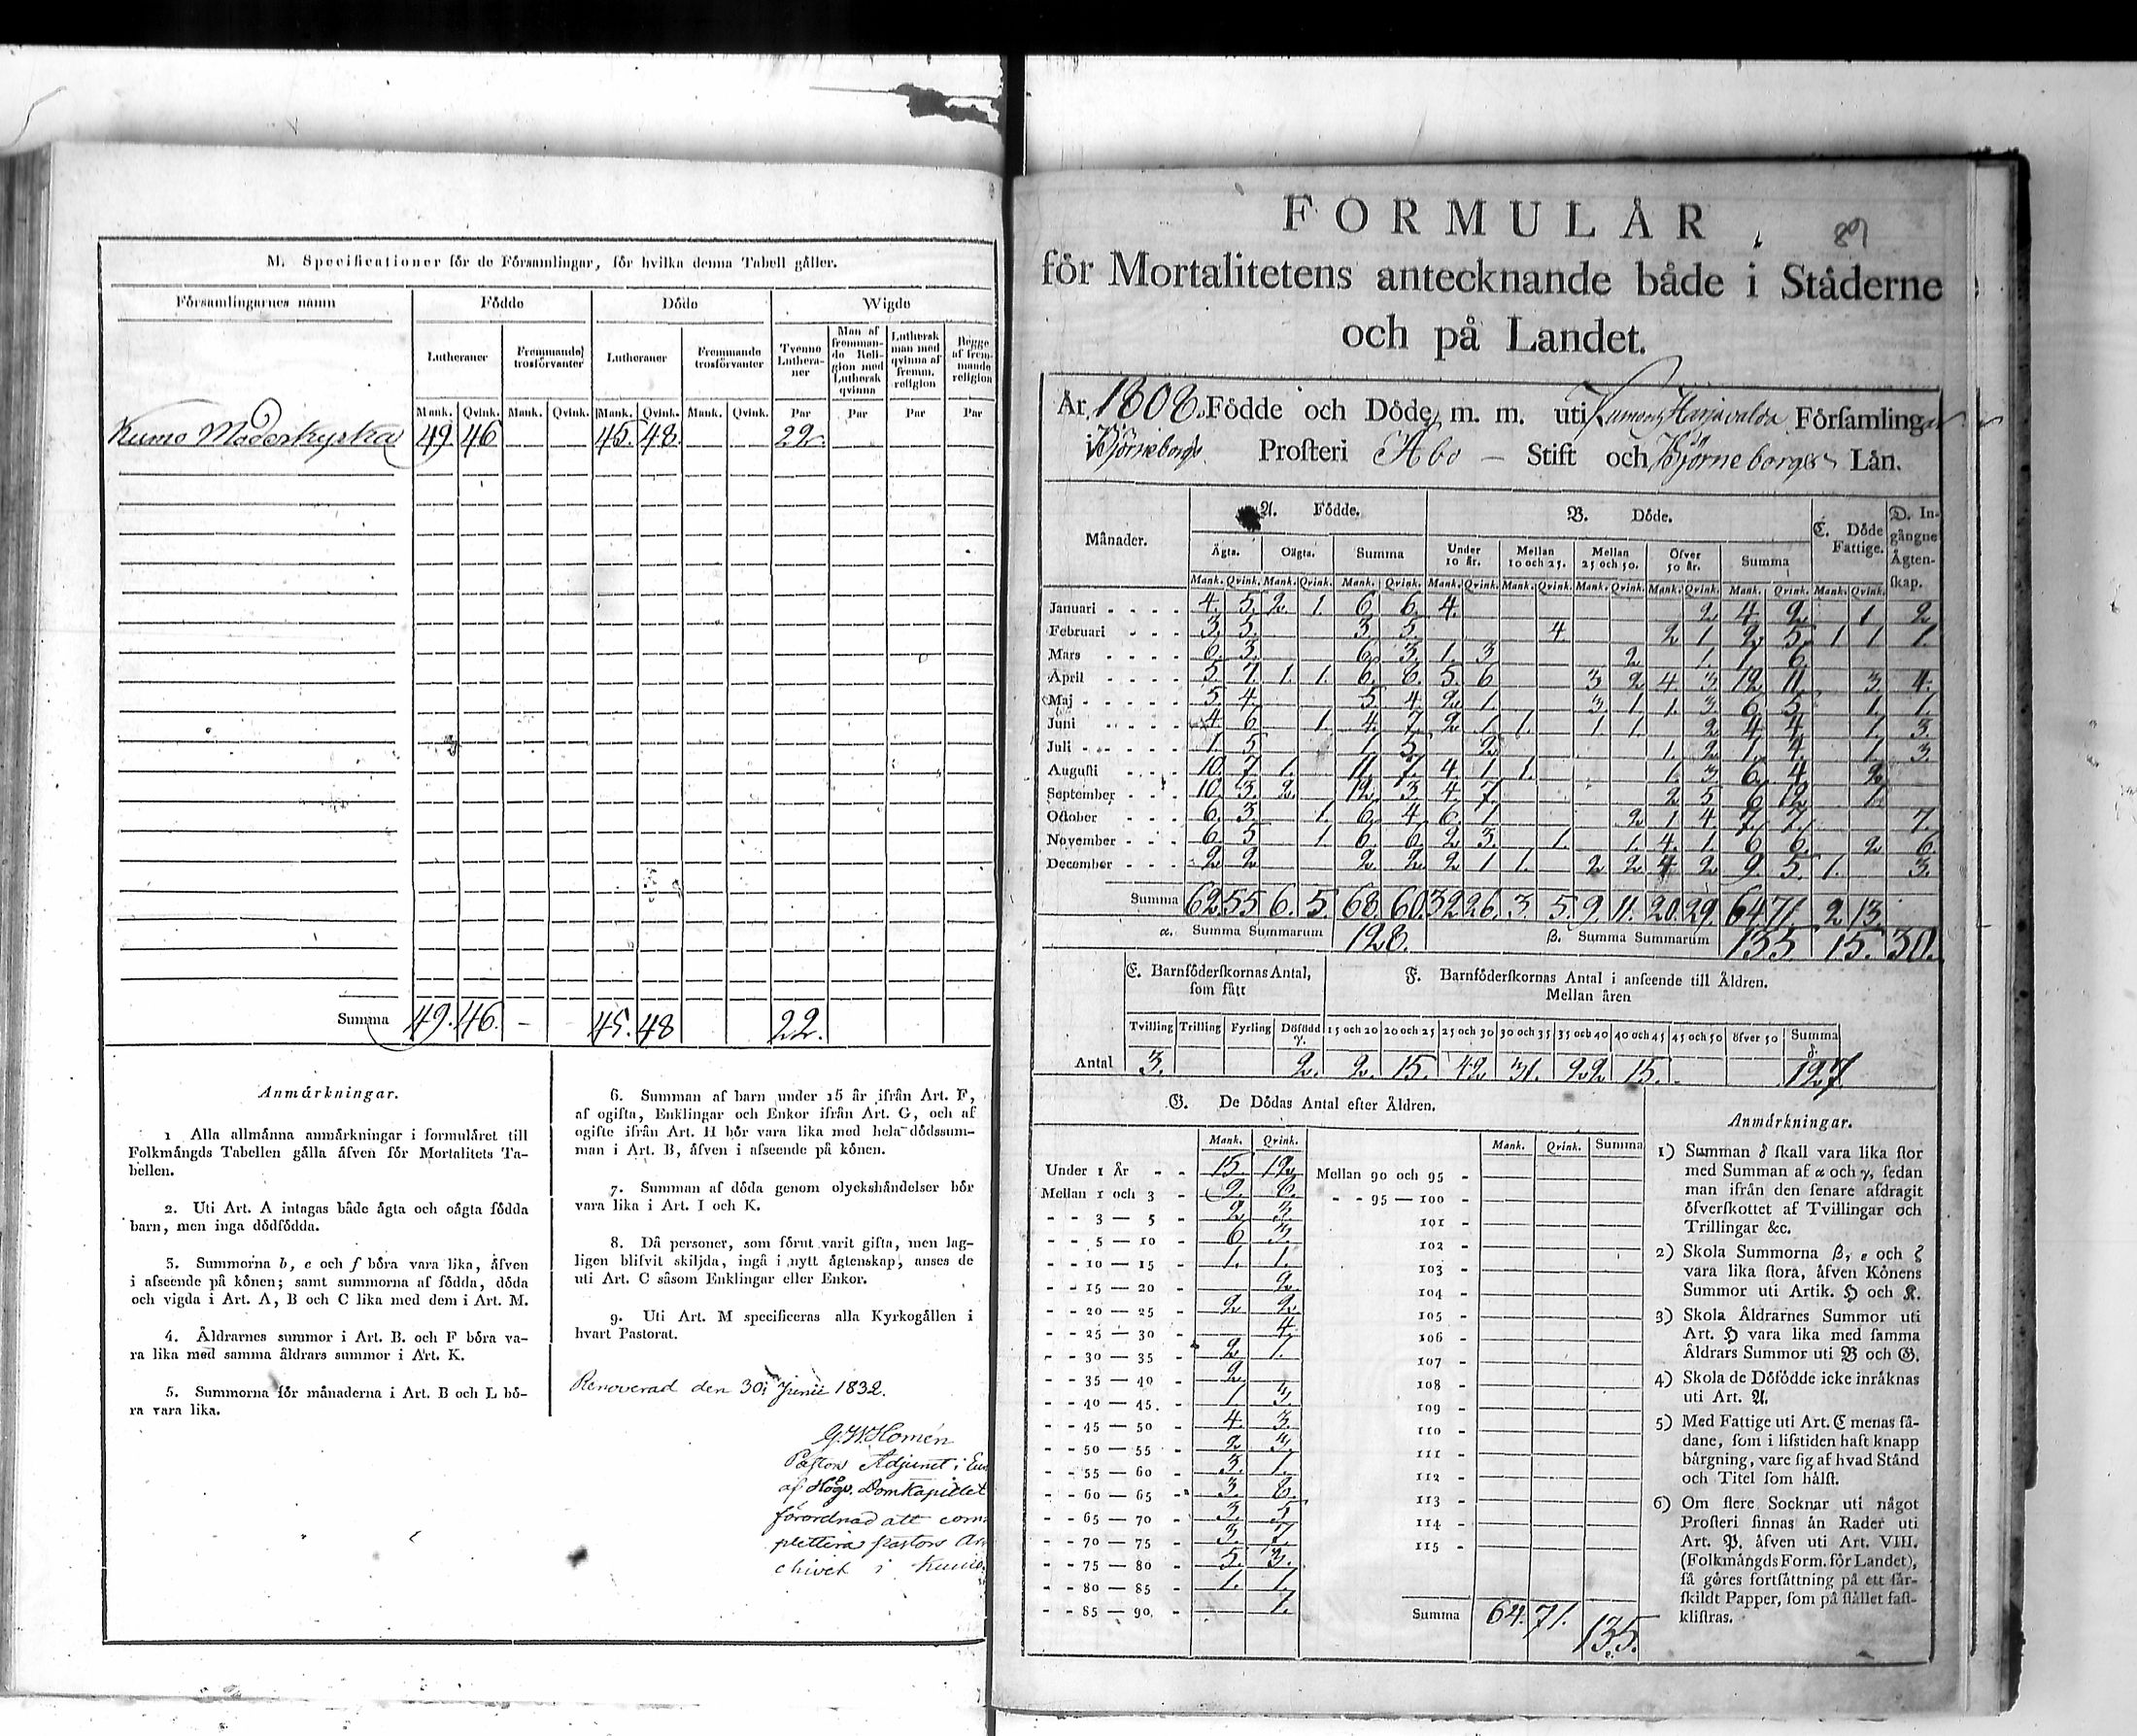 M. Specificationer för de Församlingar, för hvilka denna Tabell gäller.
Församlingarnes namn Födde Döde Wigde
Lutheraner Fremmande trosförvanter Lutheraner Fremmande trosförvanter Tvenne Lutheraner Man af fremmande Religion med Luthersk qvinna Luthersk man med qvinna af fremm. religion Begge af fremmande religion
Mank. Qvink. Mank. Qvink. Mank. Qvink. Mank. Qvink. Par Par Par Par
Kumo Moderkyrka 49. 46 45. 48. 22.
Summa 49. 46. - - 45. 48 22.
Anmärkningar.
1 Alla allmänna anmärkningar i formuläret till
Folkmängds Tabellen gälla äfven för Mortalitets Ta-
bellen.
2. Uti Art. A intagas både ägta och oägta födda
barn, men inga dödfödda.
3. Summorna b, e och f böra vara lika, äfven
i afseende på könen; samt summorna af födda, döda
och vigda i Art. A, B och C lika med dem i Art. M.
4. Äldrarnes summor i Art. B. och F böra va-
ra lika med samma åldrars summor i Art. K.
5. Summorna för månaderna i Art. B och L bö-
ra vara lika.
6. Summan af barn under 15 år ifrån Art. F,
af ogifta, Enklingar och Enkor ifrån Art. G, och af
ogifte ifrån Art. H bör vara lika med hela dödssum-
man i Art. B, äfven i afseende på könen.
7. Summan af döda genom olyckshändelser bör
vara lika i Art. I och K.
8. Då personer, som förut varit gifta, men lag-
ligen blifvit skiljda, ingå i nytt ägtenskap, anses de
uti Art. C såsom Enklingar eller Enkor.
9. Uti Art. M specificeras alla Kyrkogällen i
hvart Pastorat.
Renoverad den 30: Junii 1832.
G. W. Homén
Pastors Adjunct i Eu
af Högv. DomKapitlet
förordnad att com
plettera Pastors Ar
chivet i Kumo.
89
FORMULÄR
för Mortalitetens antecknande både i Städerne
och på Landet.
År 1808. Födde och Döde, m. m. uti Kumo och Harjavalda Församlingar
i Björneborgs Prosteri Åbo - Stift och Björneborgs Län.
Månader. A. Födde. B. Döde. C. Döde Fattige. D. Ingångne Ägtenskap.
Ägta. Oägta. Summa Under 10 år. Mellan 10 och 25. Mellan 25 och 50. Öfver 50 år. Summa
Mank. Qvink. Mank. Qvink. Mank. Qvink. Mank. Qvink. Mank. Qvink. Mank. Qvink. Mank. Qvink. Mank. Qvink. Mank. Qvink.
Januari 4. 5. 2. 1. 6. 6. 4. 2 4 2. 1 2
Februari 3. 5. 3. 5. 4. 2 1 2 5. 1 1 1.
Mars 6. 3. 6. 3. 1. 3 2 1. 1 6.
April 5. 7. 1. 1. 6. 8. 5. 6 3 2 4. 3. 12 11 3 4.
Maj 5. 4. 5 4. 2. 1. 3. 1 1. 3 6 5. 1. 1.
Juni 4. 6 1. 4. 7. 2. 1 1. 1. 1. 2 4 4 1. 3.
Juli 1. 5 1. 5. 2. 1. 2. 1. 4. 1. 3.
Augusti 10. 7. 1. 11. 7. 4. 1 1. 1. 3 6. 4. 2
September 10. 3. 2. 12. 3 4. 7. 2 5 6 12 1.
October 6. 3. 1. 6. 4 6. 1 2 1 4 7. 7. 7.
November 6. 5 1. 6. 6. 2 3. 1. 1. 4. 1. 6 6. 2 6.
December 2 2 2. 2. 2 1 1. 2 2 4 2 9. 5. 1. 3.
Summa 62 55 6. 5. 68 60. 32 26. 3. 5. 9. 11. 20. 29. 64 71. 2 13.
α. Summa Summarum 128. β. Summa Summarum 135. 15. 30.
E. Barnföderskornas Antal, som fått
F. Barnföderskornas Antal i anseende till Åldren.
Mellan åren
Tvilling Trilling Fyrling Döfödd γ. 15 och 20 20 och 25 25 och 30 30 och 35 35 och 40 40 och 45 45 och 50 öfver 50 Summa δ.
Antal 3. 2. 2. 15. 42 31. 22 15. 127
G. De Dödas Antal efter Åldren.
Mank. Qvink. Mank. Qvink. Summa
Under 1 År 15. 12
Mellan 1 och 3 9. 8.
3 — 5 2 3.
5 — 10 6 3
10 — 15 1. 1.
15 — 20 2
20 — 25 2 2.
25 — 30 4.
30 — 35 2 1.
35 — 40 2
40 — 45 1. 3.
45 — 50 4. 3.
50 — 55 2 3.
55 — 60 3. 1.
60 — 65 3. 8.
65 — 70 3. 5
70 — 75 3. 7.
75 — 80 5. 3.
80 — 85 1. 1.
85 — 90. 1.
Mellan 90 och 95
95 — 100
101
102
103
104
105
106
107
108
109
110
111
112
113
114
115
Summa 64. 71. 135.
Anmärkningar.
1) Summan δ skall vara lika stor
med Summan af α och γ, sedan
man ifrån den senare afdragit
öfverskottet af Tvillingar och
Trillingar &c.
2) Skola Summorna β, ε och ζ
vara lika stora, äfven Könens
Summor uti Artik. H och K.
3) Skola Åldrarnes Summor uti
Art. H vara lika med samma
Åldrars Summor uti B och G.
4) Skola de Döfödde icke inräknas
uti Art. A.
5) Med Fattige uti Art. C menas så-
dane, som i lifstiden haft knapp
bärgning, vare sig af hvad Stånd
och Titel som hälst.
6) Om flere Socknar uti något
Prosteri finnas än Rader uti
Art. P. äfven uti Art. VIII.
(Folkmängds Form. för Landet),
så göres fortsättning på ett sär-
skildt Papper, som på stället fast-
klistras.